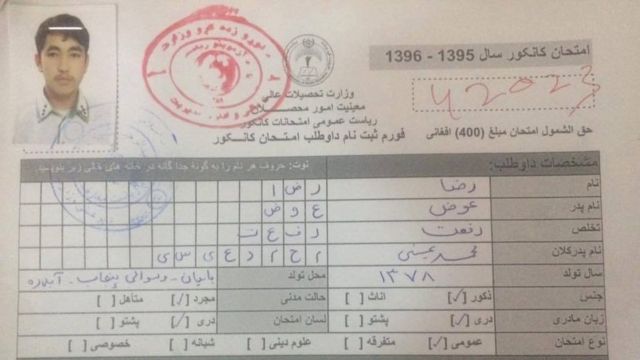 امتحان کانکور سال 1395 - 1396
وزارت تحصیلات عالی
معینیت امور محصلان
ریاست عمومی امتحانات کانکور
فورم ثبت نام داوطلب امتحان کانکور
42023
حق الشمول امتحان مبلغ (400) افغانی
مشخصات داوطلب:
نوت: حروف هر نام را به گونه جدا گانه در خانه های خالی زیر بنویسید.
نام رضا ر ض ا
نام پدر عوض ع و ض
تخلص رفعت ر ف ع ت
نام پدرکلان محمد عیسی
سال تولد ۱۳۷۸ محل تولد بامیان - ولسوالی پنجاب -
جنس ذکور [✓] اناث [ ] حالت مدنی مجرد [✓] متأهل [ ]
زبان مادری دری [✓] پشتو [ ] لسان امتحان دری [✓] پشتو [ ]
نوع امتحان عمومی [✓] متفرقه [ ] علوم دینی [ ] شبانه [ ] خصوصی [ ]